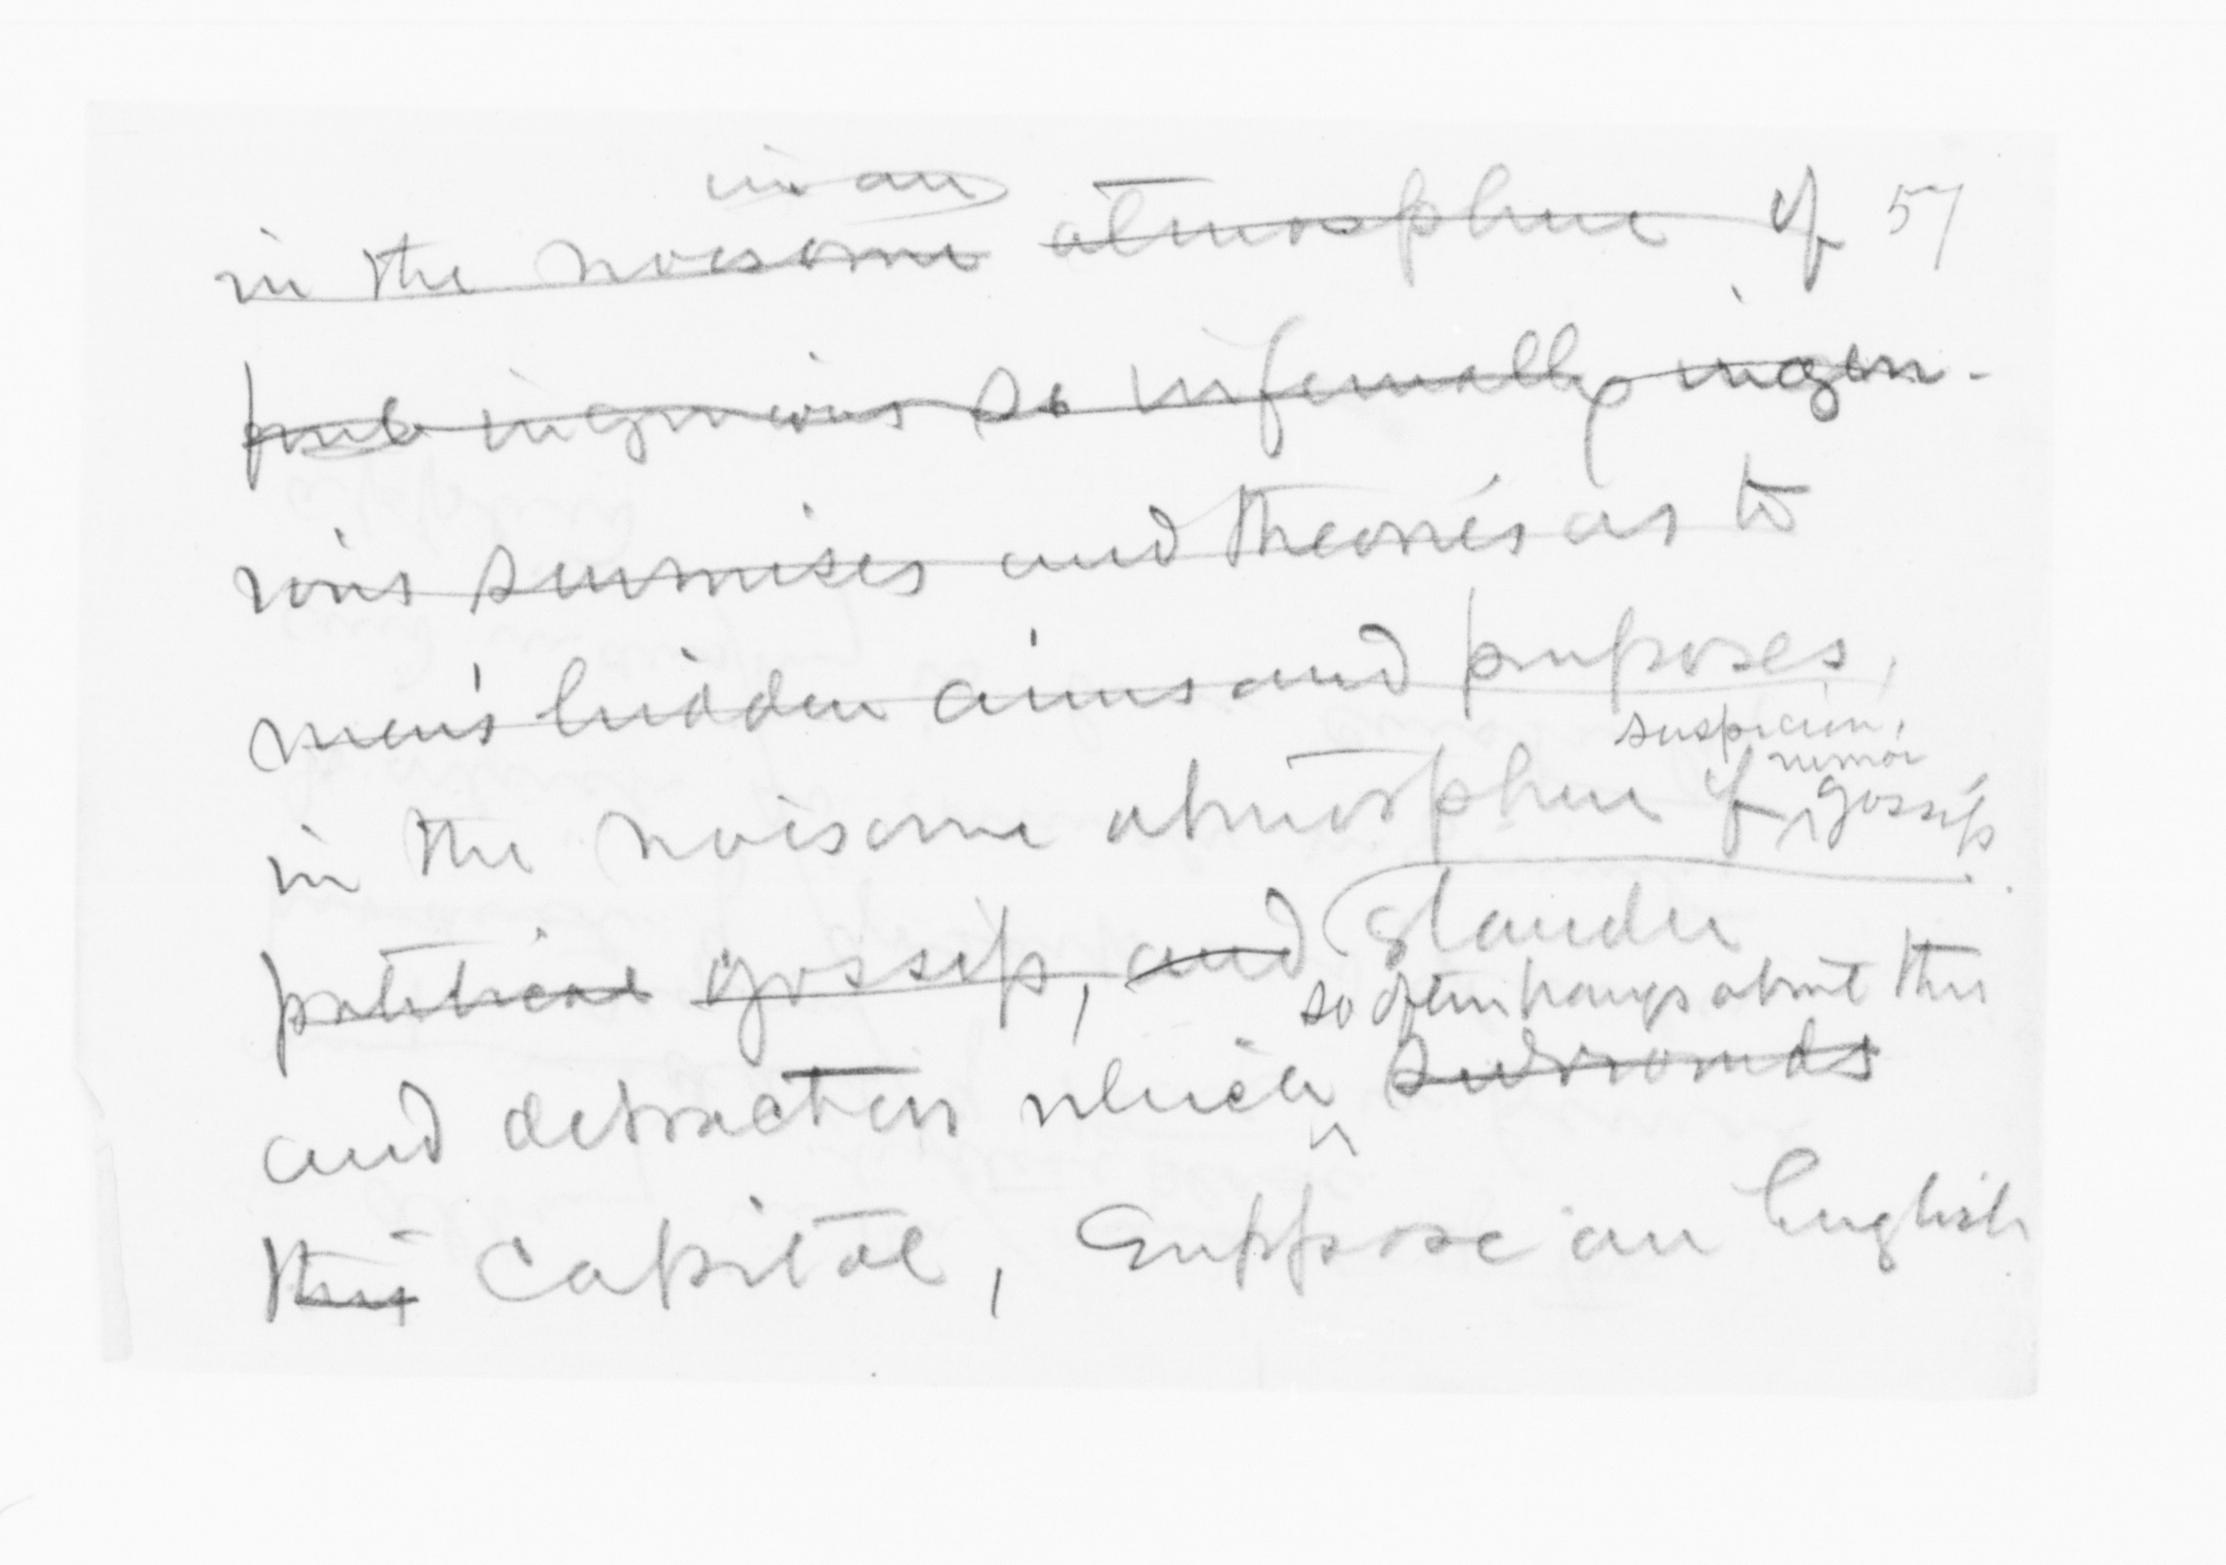 in an
in the noisome atmosphere of 57
ingenious so infernally ingen-
ious surmises and theories as to
men's hidden aims and purposes,
suspicion,
rumor
in the noisome atmosphere of gossip
political gossip, and slander
so often hangs about this
and detraction which surrounds
this Capital, Suppose an English